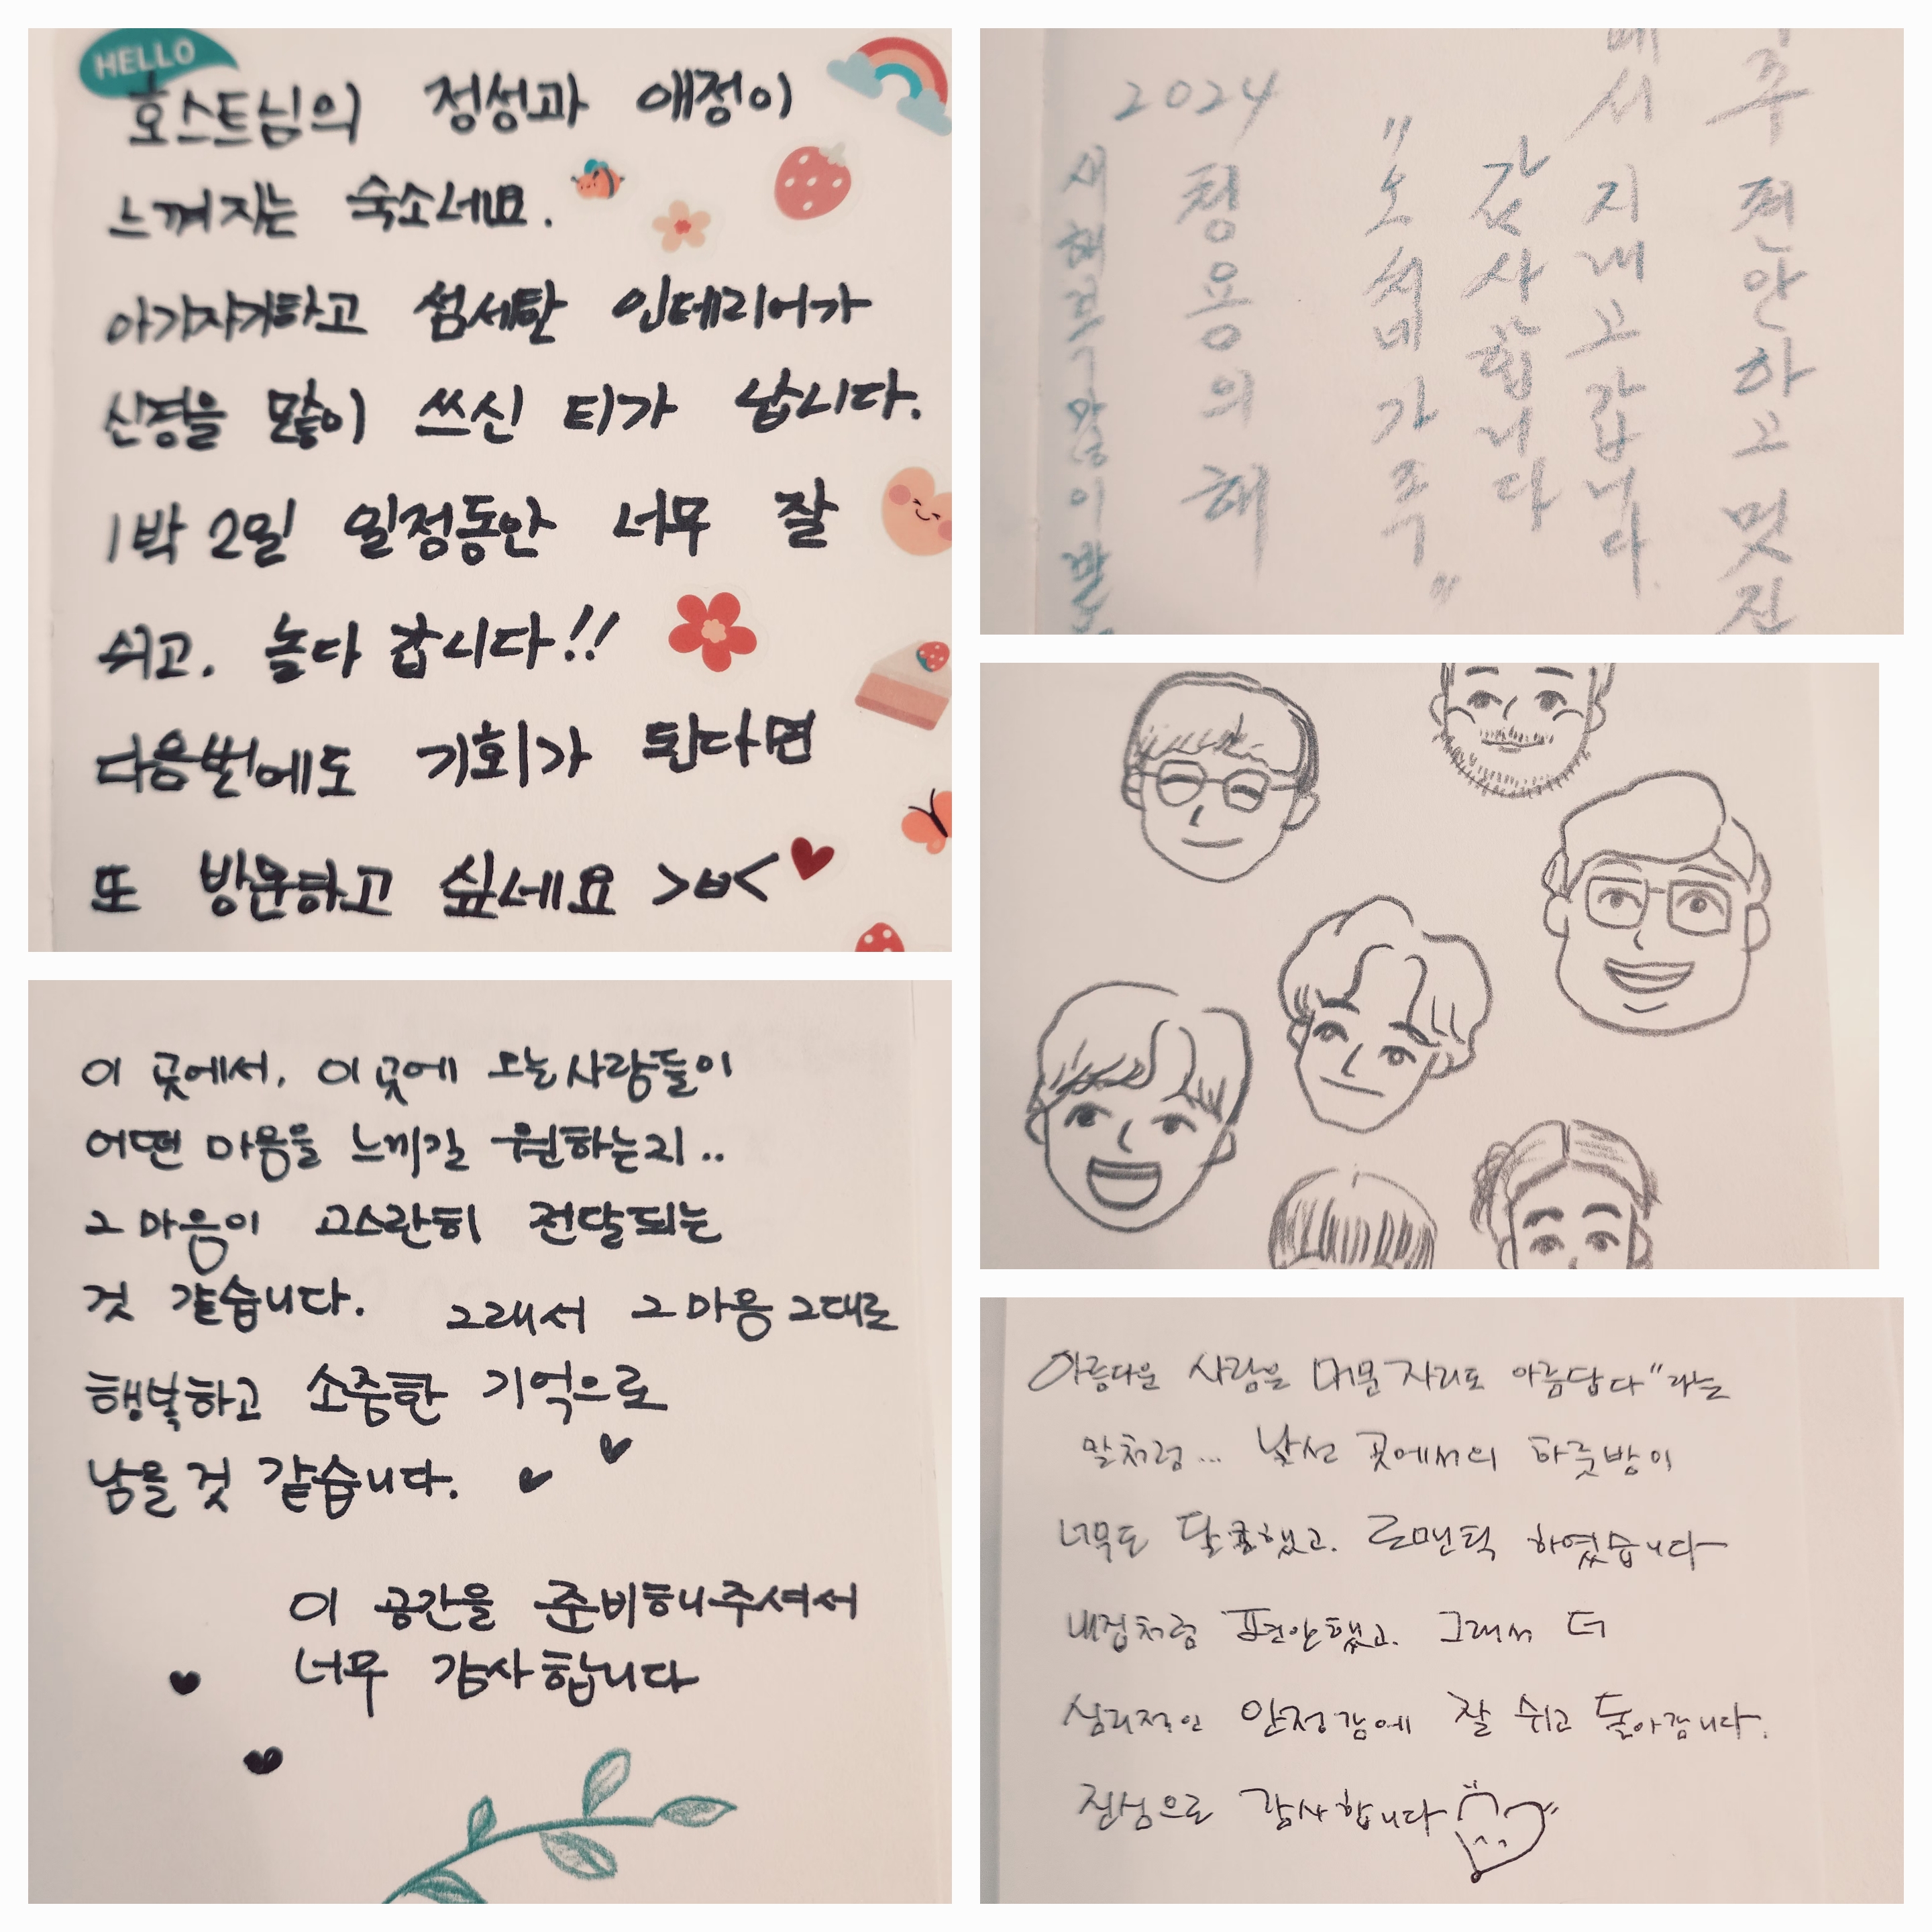 HELLO
호스트님의 정성과 애정이
느껴지는 숙소네요.
아기자기하고 섬세한 인테리어가
신경을 많이 쓰신 티가 납니다.
1박 2일 일정동안 너무 잘
쉬고. 놀다 갑니다!!
다음번에도 기회가 된다면
또 방문하고 싶네요 >ㅂ<
주 편안하고 멋진
에서 지내고 갑니다.
감사합니다
"노처네 가족"
2024
청용의 해
새해 복 많이 받
이 곳에서, 이 곳에 오는 사람들이
어떤 마음을 느끼길 원하는지..
그 마음이 고스란히 전달되는
것 같습니다. 그래서 그 마음 그대로
행복하고 소중한 기억으로
남을 것 같습니다.
이 공간을 준비해주셔서
너무 감사합니다
아름다운 사람은 머문 자리도 아름답다" 라는
말처럼... 낯선 곳에서의 하룻밤이
너무도 달콤했고. 로맨틱 하였습니다
내집처럼 편안했고. 그래서 더
심리적인 안정감에 잘 쉬고 돌아갑니다.
진심으로 감사합니다